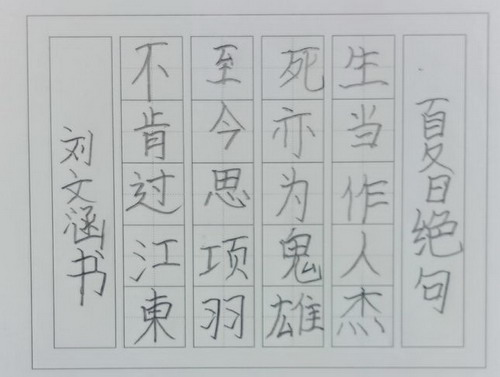 夏日绝句
生当作人杰
死亦为鬼雄
至今思项羽
不肯过江東
刘文涵书